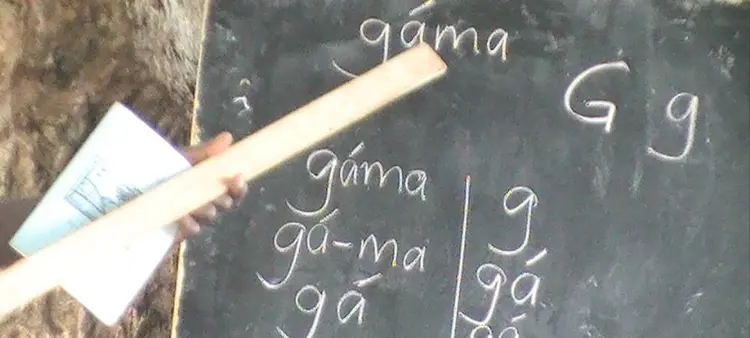 gáma
G g
gáma
gá-ma
gá
g
gá
gá